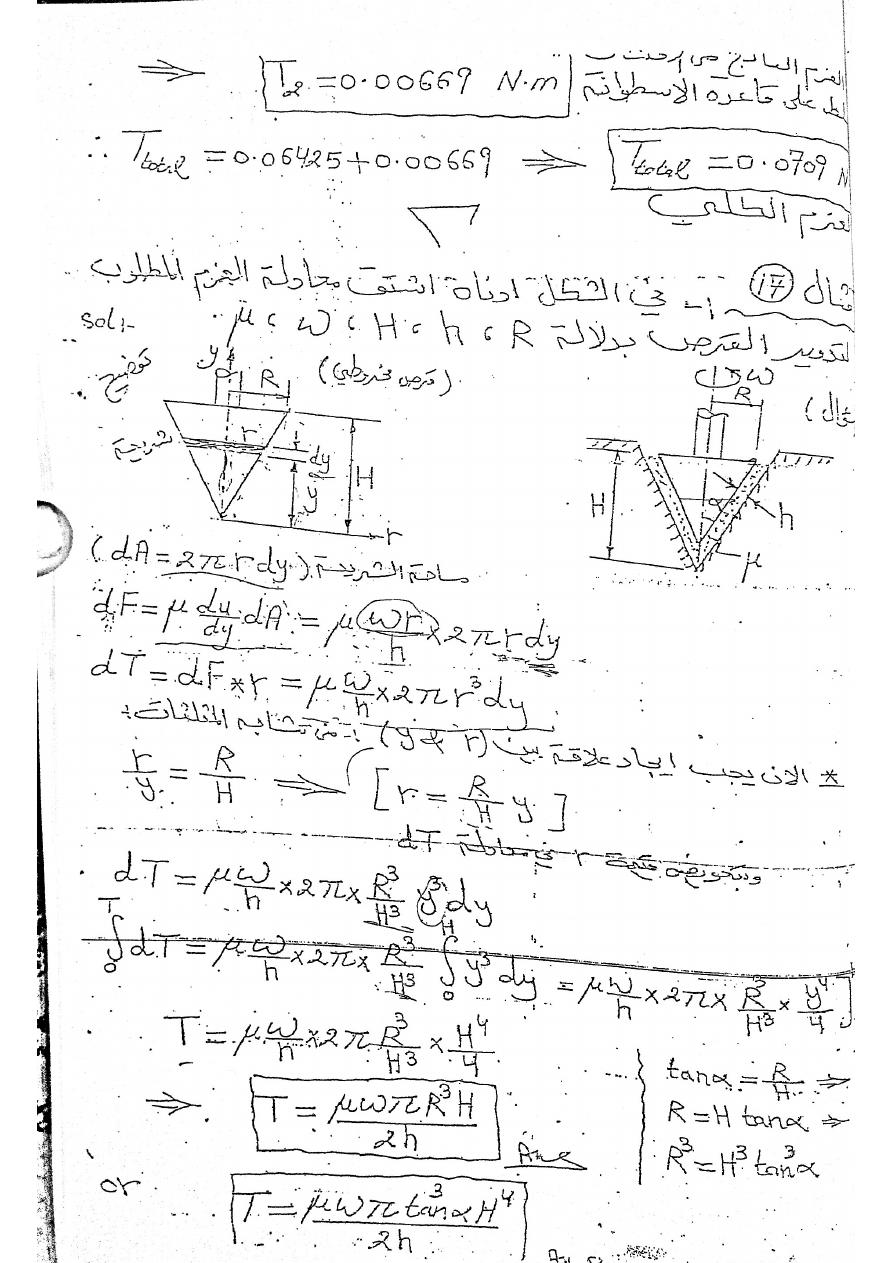 ⇒ T₂ = 0.00669 N.m
على قاعده الاسطوانة
∴ T total = 0.06425 + 0.00669 ⇒ T total = 0.0709 N
العزم الكلي
مثال (17) 1- في الشكل ادناه اشتق معادلة العزم المطلوب
لتدوير القرص بدلالة R ، h ، H ، ω ، μ
sol:-
توضيح
(قرص مخروطي)
y
R
r
شريحة
dy
y
H
r
ω
R
H
α
h
μ
مساحة الشريحة (dA = 2πr dy)
dF = μ du/dy dA = μ ωr/h × 2πr dy
dT = dF * r = μ ω/h × 2π r³ dy
* الان يجب ايجاد علاقة بين (r & y) :- من تشابه المثلثات:
r/y = R/H ⇒ [r = R/H y]
وبتعويض قيمة r في معادلة dT
dT = μ ω/h × 2π × R³/H³ y³ dy
∫₀ᵀ dT = μ ω/h × 2π × R³/H³ ∫₀ᴴ y³ dy = μ ω/h × 2π × R³/H³ × y⁴/4 ]
T = μ ω/h × 2π R³/H³ × H⁴/4
⇒ T = μωπR³H/2h Ans
tanα = R/H ⇒
R = H tanα ⇒
R³ = H³ tan³α
or T = μωπ tan³α H⁴/2h